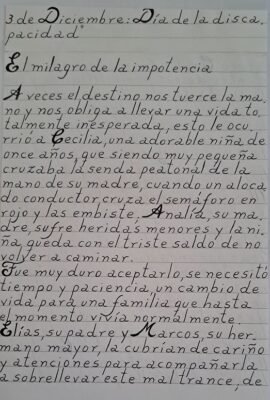 3 de Diciembre: Día de la disca_
pacidad"
El milagro de la impotencia
A veces el destino nos tuerce la ma_
no y nos obliga a llevar una vida to_
talmente inesperada, esto le ocu_
rrió a Cecilia, una adorable niña de
once años, que siendo muy pequeña
cruzaba la senda peatonal de la
mano de su madre, cuando un aloca_
do conductor cruza el semáforo en
rojo y las embiste, Analía, su ma_
dre, sufre heridas menores y la ni_
ña, queda con el triste saldo de no
volver a caminar.
Fue muy duro aceptarlo, se necesitó
tiempo y paciencia, un cambio de
vida para una familia que hasta
el momento vivía normalmente.
Elías, su padre y Marcos, su her_
mano mayor, la cubrían de cariño
y atenciones para acompañarla
a sobrellevar este mal trance, de